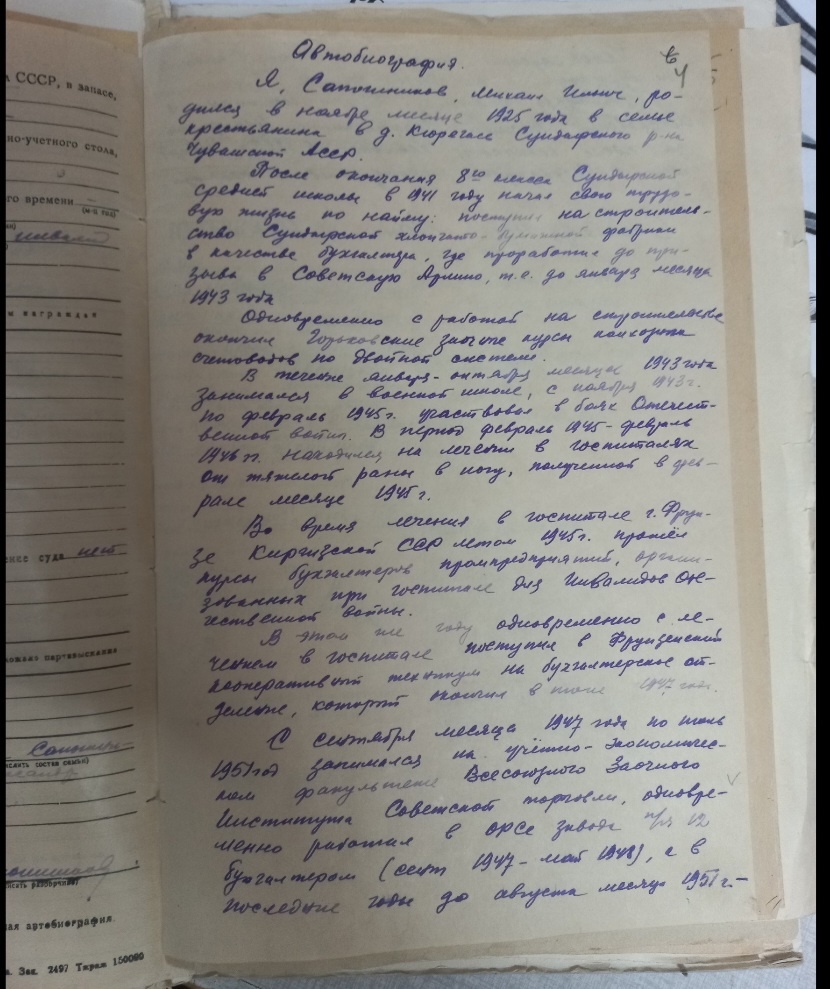 СССР, в запасе,
но-учетного стола,
го времени
(м-ц год)
инвалид
м награжден
ение суда нет
можно партвзыскания
слить состав семьи)
исать разборчиво)
ная автобиография.
Зак. 2497 Тираж 150000
6
4
Автобиография.
Я, Сапожников, Михаил Ильич, ро-
дился в ноябре месяце 1925 года в семье
крестьянина в д. Кюрегаси Сундырского р-на
Чувашской АССР.
После окончания 8го класса Сундырской
средней школы в 1941 году начал свою трудо-
вую жизнь по найму: поступил на строитель-
ство Сундырской хлопчато-бумажной фабрики
в качестве бухгалтера, где проработал до при-
зыва в Советскую Армию, т.е. до января месяца
1943 года
Одновременно с работой на строительстве
окончил Горьковские заочные курсы
счетоводов по двойной системе.
В течение января-октября месяцев 1943 года
занимался в военной школе, с ноября 1943 г.
по февраль 1945 г. участвовал в боях Отечест-
венной войны. В период февраль 1945 - февраль
1946 гг. находился на лечении в госпиталях
от тяжелой раны в ногу, полученной в фев-
рале месяце 1945 г.
Во время лечения в госпитале г. Фрун-
зе Киргизской ССР летом 1945 г. прошёл
курсы бухгалтеров промпредприятий, органи-
зованных при госпитале для инвалидов Оте-
чественной войны.
В этом же году одновременно с ле-
чением в госпитале поступил в Фрунзенский
кооперативный техникум на бухгалтерское от-
деление, который окончил в июле 1947 года.
С сентября месяца 1947 года по июль
1951 год занимался на учётно-экономичес-
ком факультете Всесоюзного Заочного
Института Советской торговли, одновре-
менно работал в ОРСе завода п/я 12
бухгалтером (сент 1947 - май 1948), а в
последние годы до августа месяца 1951 г. -